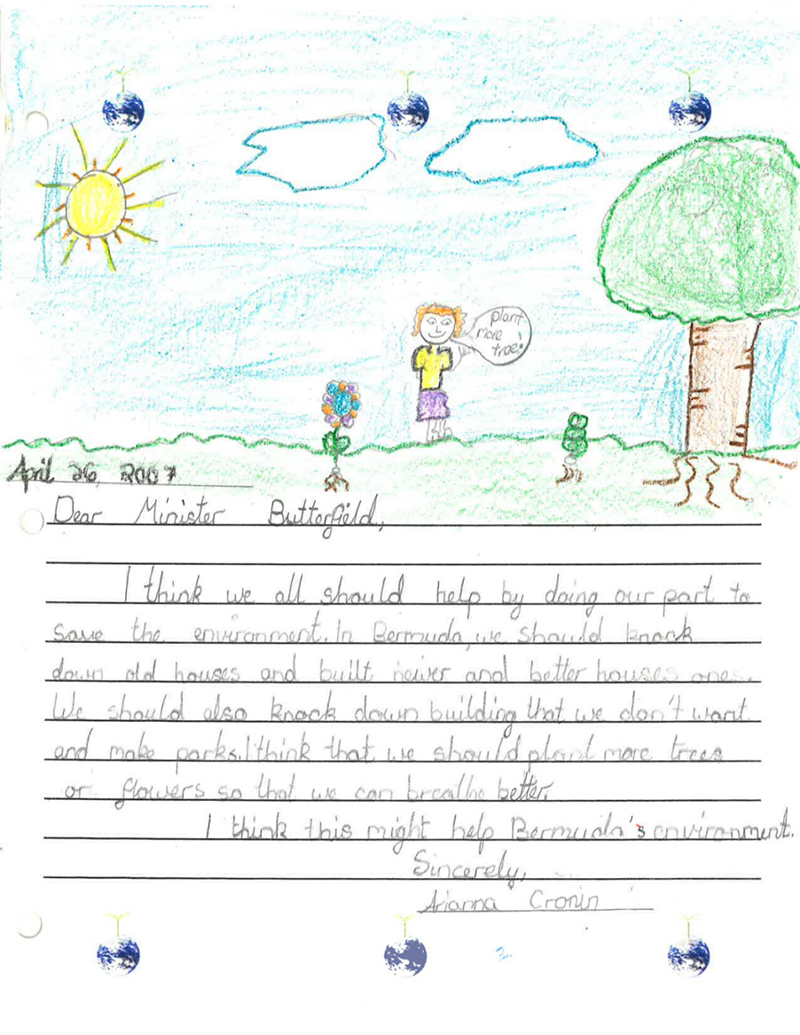 plant
more
trees
April 26, 2007
Dear Minister Butterfield,
I think we all should help by doing our part to
save the environment. In Bermuda, we should knock
down old houses and built newer and better houses ones.
We should also knock down building that we don't want
and make parks. I think that we should plant more trees
or flowers so that we can breathe better.
I think this might help Bermuda's environment.
Sincerely,
Arianna Cronin